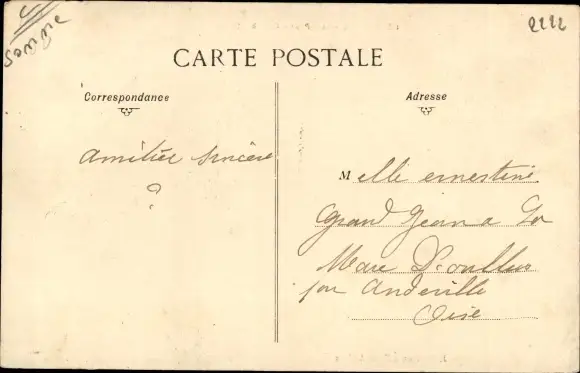 Somme
2222
CARTE POSTALE
Correspondance
Adresse
Amitiés sincère
?
Melle ernestine
Grand Jean a La
Mare D'ovillers
par Andeville
Oise